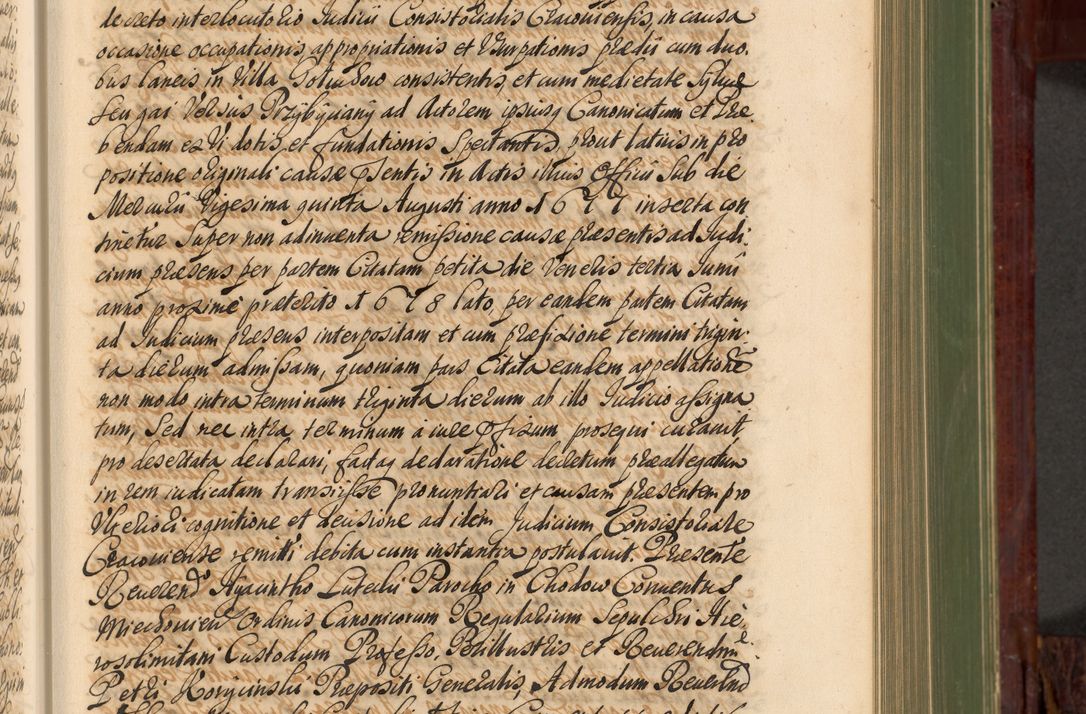 decreto interlocutorio Judicii Consistorialis Cracoviensis, in causa
occasione occupationis appropriationis et Vsurpationis prædii cum duo,
bus laneis in Villa consistentis, et cum medietate Sylvæ
seu gai Versus Przybyciany ad Actorem ipsiusq Canonicatum et Præ
bendam ex Vi dotis et fundationis Spectantis, prout latius in pro
positione originali causæ psentis in Actis illius Officii Sub die
Mercurii Vigesima quinta Augusti anno 1677 inserta con
tinetur Super non adinventa remissione causæ præsentis ad Judi,
cium præsens per partem Citatam petita die Veneris tertia Junii
anno proxime præterito 1678 lato, per eandem partem Citatam
ad Judicium præsens interpositam et cum præfixione termini trigin,
ta dierum admissam, quoniam pars Citata eandem appellatione
non modo intra terminum triginta dierum ab illo Judicio assigna
tum, Sed nec intra terminum a iure pfixum prosequi curavit
pro desertata declarari, factaq declaratione decretum præallegatum
in rem iudicatam transivisse pronuntiari et causam præsentem pro
Vlteriori cognitione et decisione ad idem Judicium Consistoriale
Cracoviense remitti debita cum instantia postulavit. Præsente
Reverend Hyacintho Parocho in Chodow Conventus
Miechovien Ordinis Canonicorum Regularium Sepulchri Hie,
rosolimitani Custodum Professo, Perillustris et Reverendmi
Petri Præpositi Generalis, Admodum Reverend